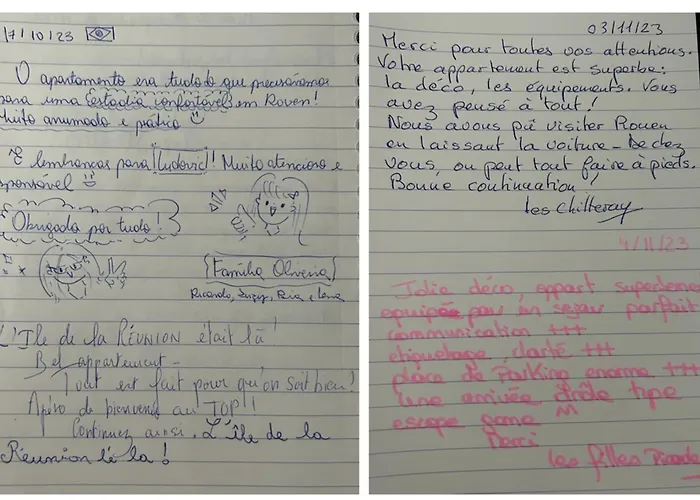 /7/10/23
O apartamento era tudo o que precisávamos
para uma estadia confortável em Roven!
Muito arrumado e prático
E lembranças para Ludovic! Muito atencioso e
sponsável
Obrigada por tudo!
Família Oliveira
Ricardo,
L'Ile de la RÉUNION était là
Bel appartement -
Tout est fait pour qu'on soit bien!
Apéro de bienvenue au TOP!
Continuez ainsi. L'île de la
Réunion lé la!
03/11/23
Merci pour toutes vos attentions.
Votre appartement est superbe:
la déco, les équipements. Vous
avez pensé à tout!
Nous avons pû visiter Rouen
en laissant la voiture - De chez
vous, on peut tout faire à pieds.
Bonne continuation!
les Chilteray
4/11/23
Jolie déco, appart superbement
équipée pour un séjour parfait
communication +++
etiquetage, clarté +++
place de Parking enorme +++
Une arrivée drôle type
escape game ^^
Merci
les filles